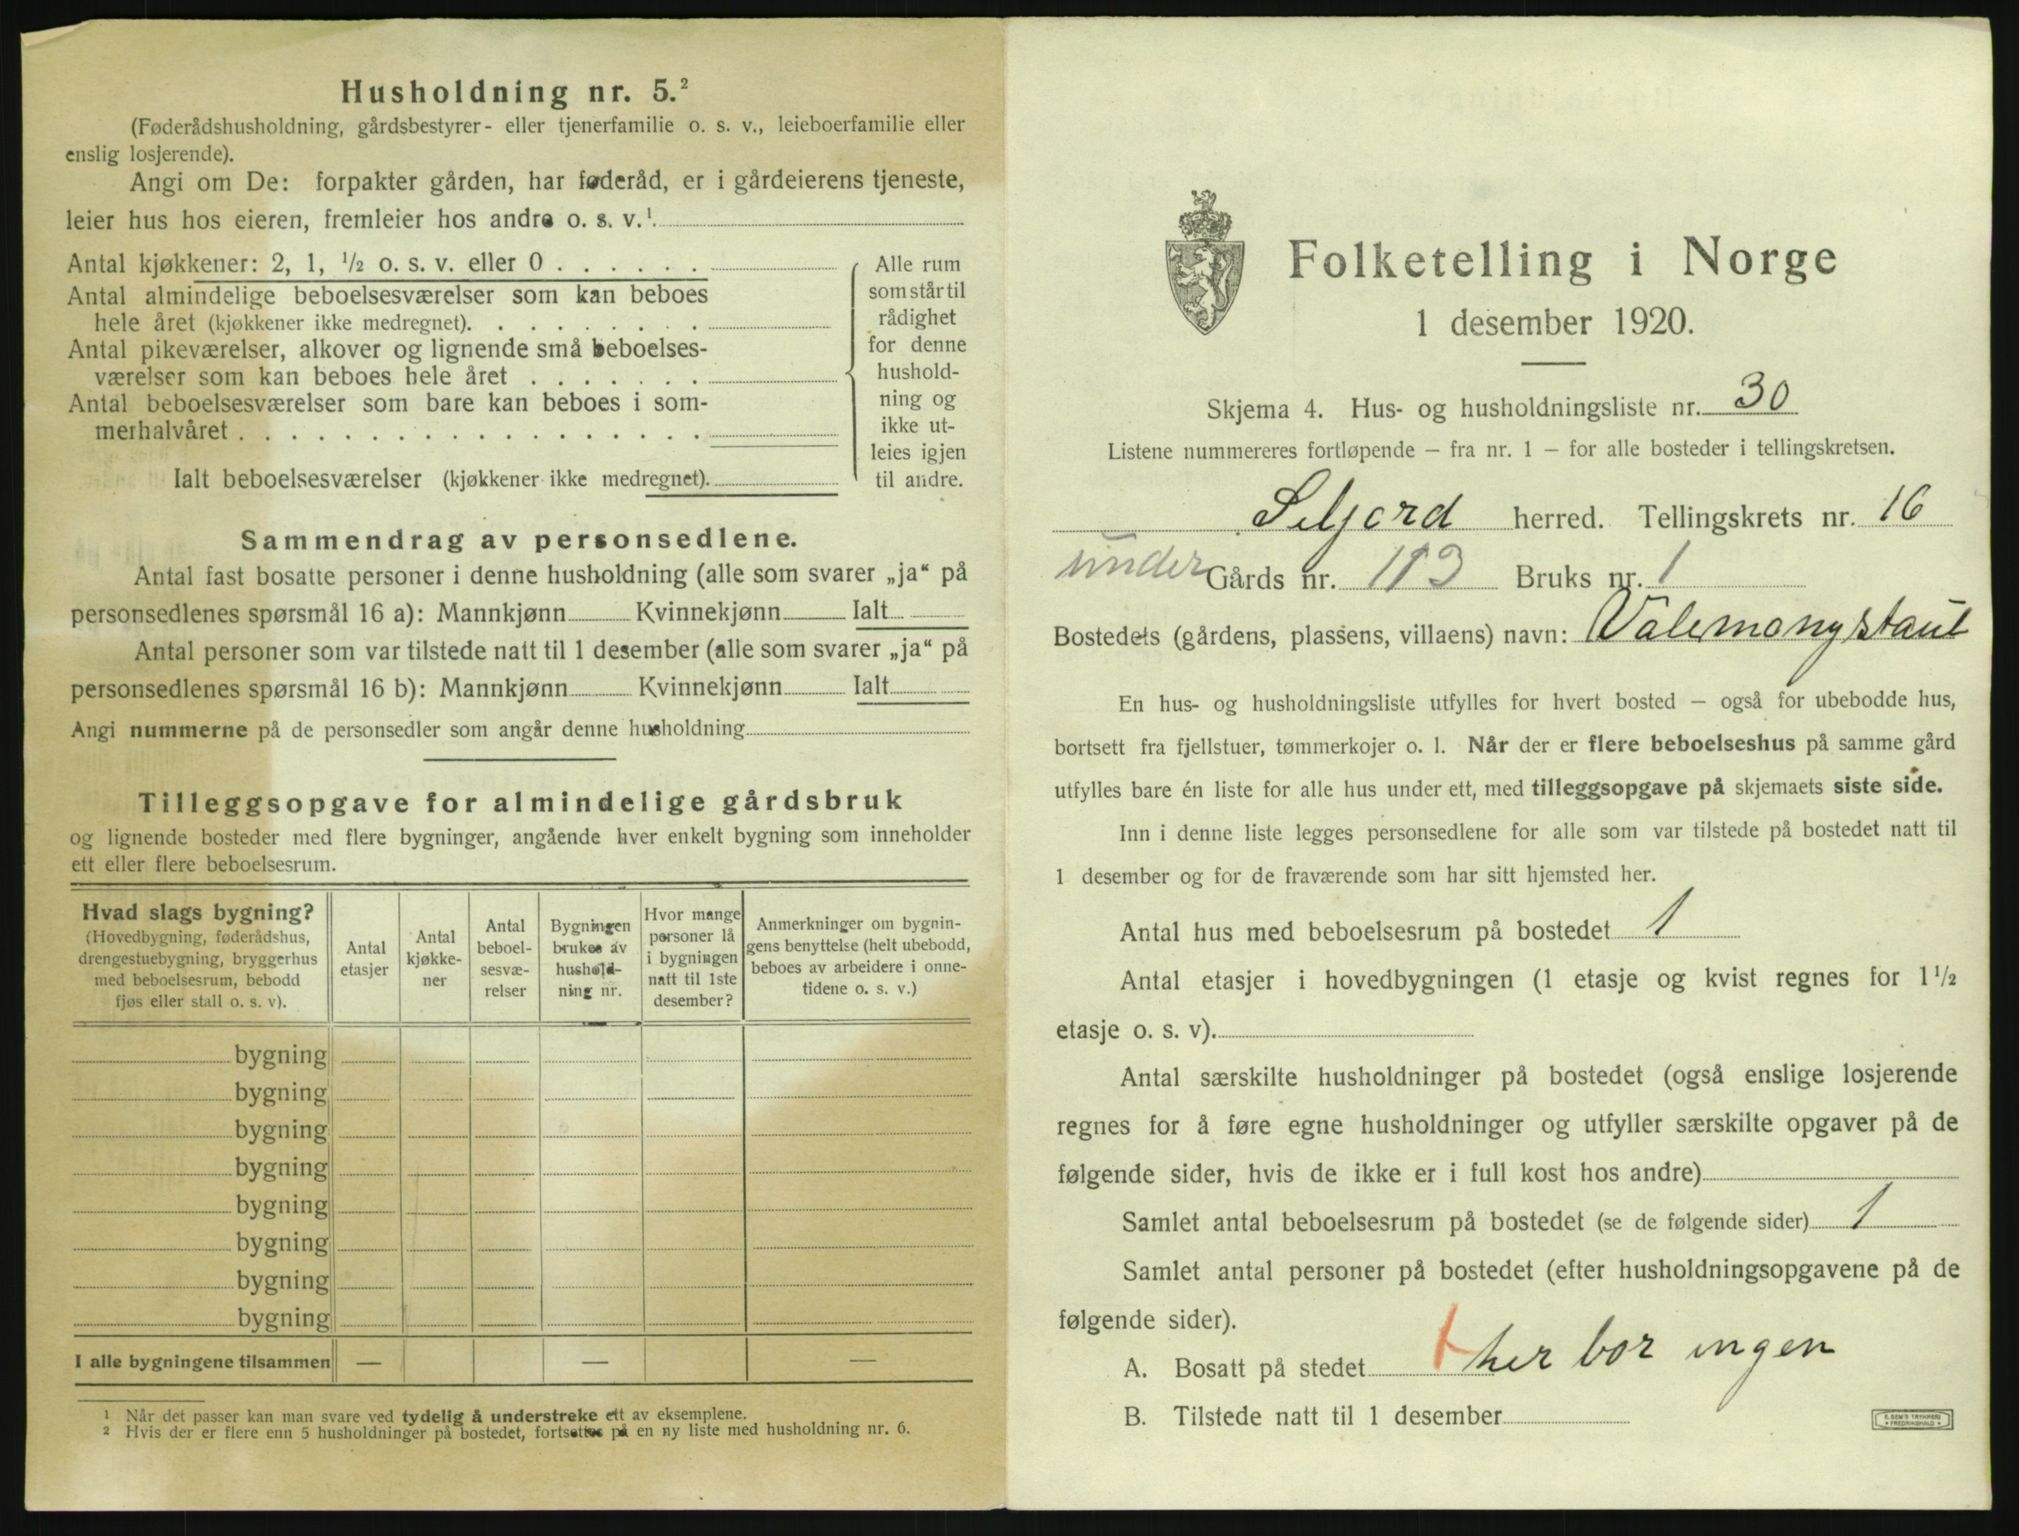 Husholdning nr. 5.²
(Føderådshusholdning, gårdsbestyrer- eller tjenerfamilie o. s. v., leieboerfamilie eller
enslig losjerende).
Angi om De: forpakter gården, har føderåd, er i gårdeierens tjeneste,
leier hus hos eieren, fremleier hos andre o. s. v.¹
Antal kjøkkener: 2, 1, ½ o. s. v. eller 0 . . . . . .
Antal almindelige beboelsesværelser som kan beboes
hele året (kjøkkener ikke medregnet). . . . . . . . .
Antal pikeværelser, alkover og lignende små beboelses-
værelser som kan beboes hele året . . . . . . .
Antal beboelsesværelser som bare kan beboes i som-
merhalvåret . . . . . . . . . . . . . . . . . .
Ialt beboelsesværelser (kjøkkener ikke medregnet).
Alle rum
som står til
rådighet
for denne
hushold-
ning og
ikke ut-
leies igjen
til andre.
Sammendrag av personsedlene.
Antal fast bosatte personer i denne husholdning (alle som svarer „ja“ på
personsedlenes spørsmål 16 a): Mannkjønn Kvinnekjønn Ialt
Antal personer som var tilstede natt til 1 desember (alle som svarer „ja“ på
personsedlenes spørsmål 16 b): Mannkjønn Kvinnekjønn Ialt
Angi nummerne på de personsedler som angår denne husholdning
Tilleggsopgave for almindelige gårdsbruk
og lignende bosteder med flere bygninger, angående hver enkelt bygning som inneholder
ett eller flere beboelsesrum.
Hvad slags bygning?
(Hovedbygning, føderådshus,
drengestuebygning, bryggerhus
med beboelsesrum, bebodd
fjøs eller stall o. s. v).
Antal
etasjer
Antal
kjøkke-
ner
Antal
beboel-
sesvæ-
relser
Bygningen
brukes av
hushold-
ning nr.
Hvor mange
personer lå
i bygningen
natt til 1ste
desember?
Anmerkninger om bygnin-
gens benyttelse (helt ubebodd,
beboes av arbeidere i onne-
tidene o. s. v.)
bygning
bygning
bygning
bygning
bygning
bygning
bygning
bygning
I alle bygningene tilsammen — — —
¹ Når det passer kan man svare ved tydelig å understreke ett av eksemplene.
² Hvis der er flere enn 5 husholdninger på bostedet, fortsettes på en ny liste med husholdning nr. 6.
Folketelling i Norge
1 desember 1920.
Skjema 4. Hus- og husholdningsliste nr. 30
Listene nummereres fortløpende – fra nr. 1 – for alle bosteder i tellingskretsen.
Seljord herred. Tellingskrets nr. 16
under Gårds nr. 113 Bruks nr. 1
Bostedets (gårdens, plassens, villaens) navn: Valemongstaul
En hus- og husholdningsliste utfylles for hvert bosted – også for ubebodde hus,
bortsett fra fjellstuer, tømmerkojer o. l. Når der er flere beboelseshus på samme gård
utfylles bare én liste for alle hus under ett, med tilleggsopgave på skjemaets siste side.
Inn i denne liste legges personsedlene for alle som var tilstede på bostedet natt til
1 desember og for de fraværende som har sitt hjemsted her.
Antal hus med beboelsesrum på bostedet 1
Antal etasjer i hovedbygningen (1 etasje og kvist regnes for 1½
etasje o. s. v).
Antal særskilte husholdninger på bostedet (også enslige losjerende
regnes for å føre egne husholdninger og utfyller særskilte opgaver på de
følgende sider, hvis de ikke er i full kost hos andre)
Samlet antal beboelsesrum på bostedet (se de følgende sider) 1
Samlet antal personer på bostedet (efter husholdningsopgavene på de
følgende sider).
A. Bosatt på stedet her bor ingen
B. Tilstede natt til 1 desember
E. SEM'S TRYKKERI
FREDRIKSHALD